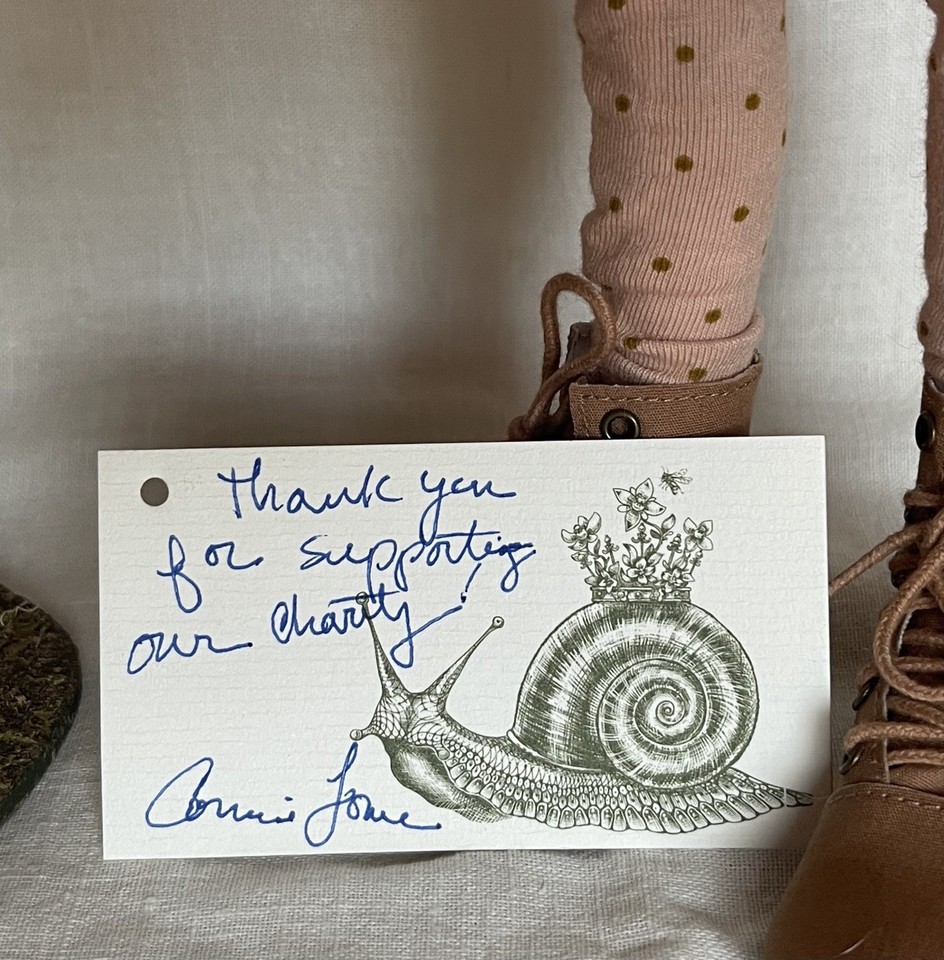 Thank you
for supporting
our charity!
Connie Lowe